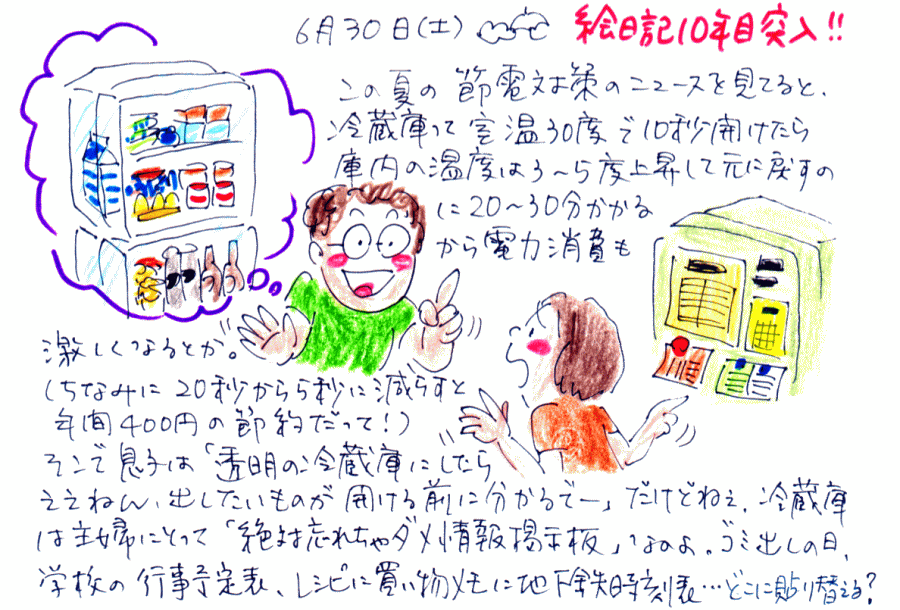 6月30日(土)
絵日記10年目突入!!
この夏の節電対策のニュースを見てると、
冷蔵庫って室温30度で10秒開けたら
庫内の温度は3〜5度上昇して元に戻すの
に20〜30分かかる
から電力消費も
激しくなるとか。
(ちなみに20秒から5秒に減らすと
年間400円の節約だって!)
そこで息子は「透明の冷蔵庫にしたら
ええねん、出したいものが開ける前に分かるでー」だけどねぇ、冷蔵庫
は主婦にとって「絶対忘れちゃダメ情報掲示板」なのよ。ゴミ出しの日、
学校の行事予定表、レシピに買い物メモに地下鉄時刻表…どこに貼り替える?